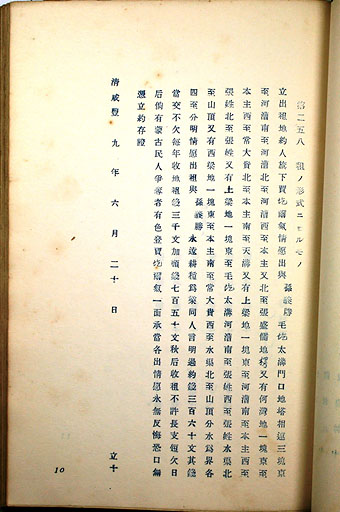 第二五八 租ノ形式ニヨルモノ
立出租地約人旗下賈 情愿出與孫義勝毛 太溝門口地塔相連三塊東
至河清南至河清西至本主又北至張盛儒地 又有何灣地一塊東至
本主西至常大貴北至本主南至天溝又有上梁地一塊東至河清南至本主西至
張姓北至張姓又有上梁地一塊東至毛 太溝河清南至張姓西至張姓水渠北
至山頂又有西梁地一塊東至本主南至常大貴西至水渠北至山頂分水爲界各
四至分明情愿出租與孫義勝永遠耕種爲業同人言明過約錢三百六十文其錢
當交不欠每年收地租錢三千文加頭錢七百五十文秋后收租不許長支短欠日
后倘有蒙古民人爭奪者有色登賈 一面承當各出情愿永無反悔恐口無
憑立約存證
清咸豐九年六月二十日 立十
10